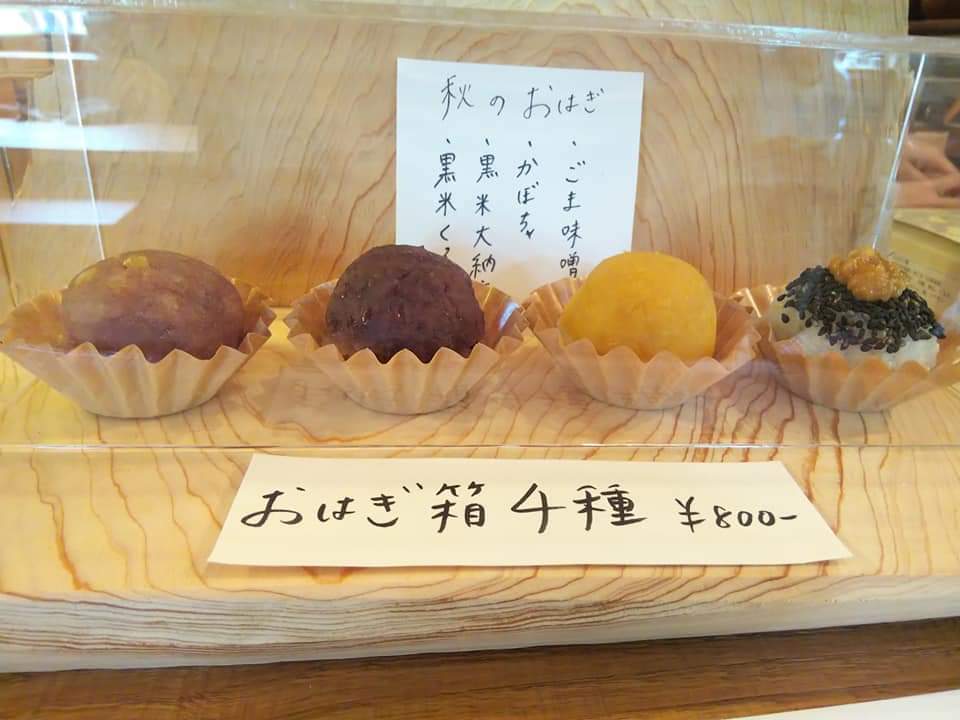 秋のおはぎ
・ごま味噌
・かぼちゃ
・黒米大納
・黒米く
おはぎ箱4種 ¥800-